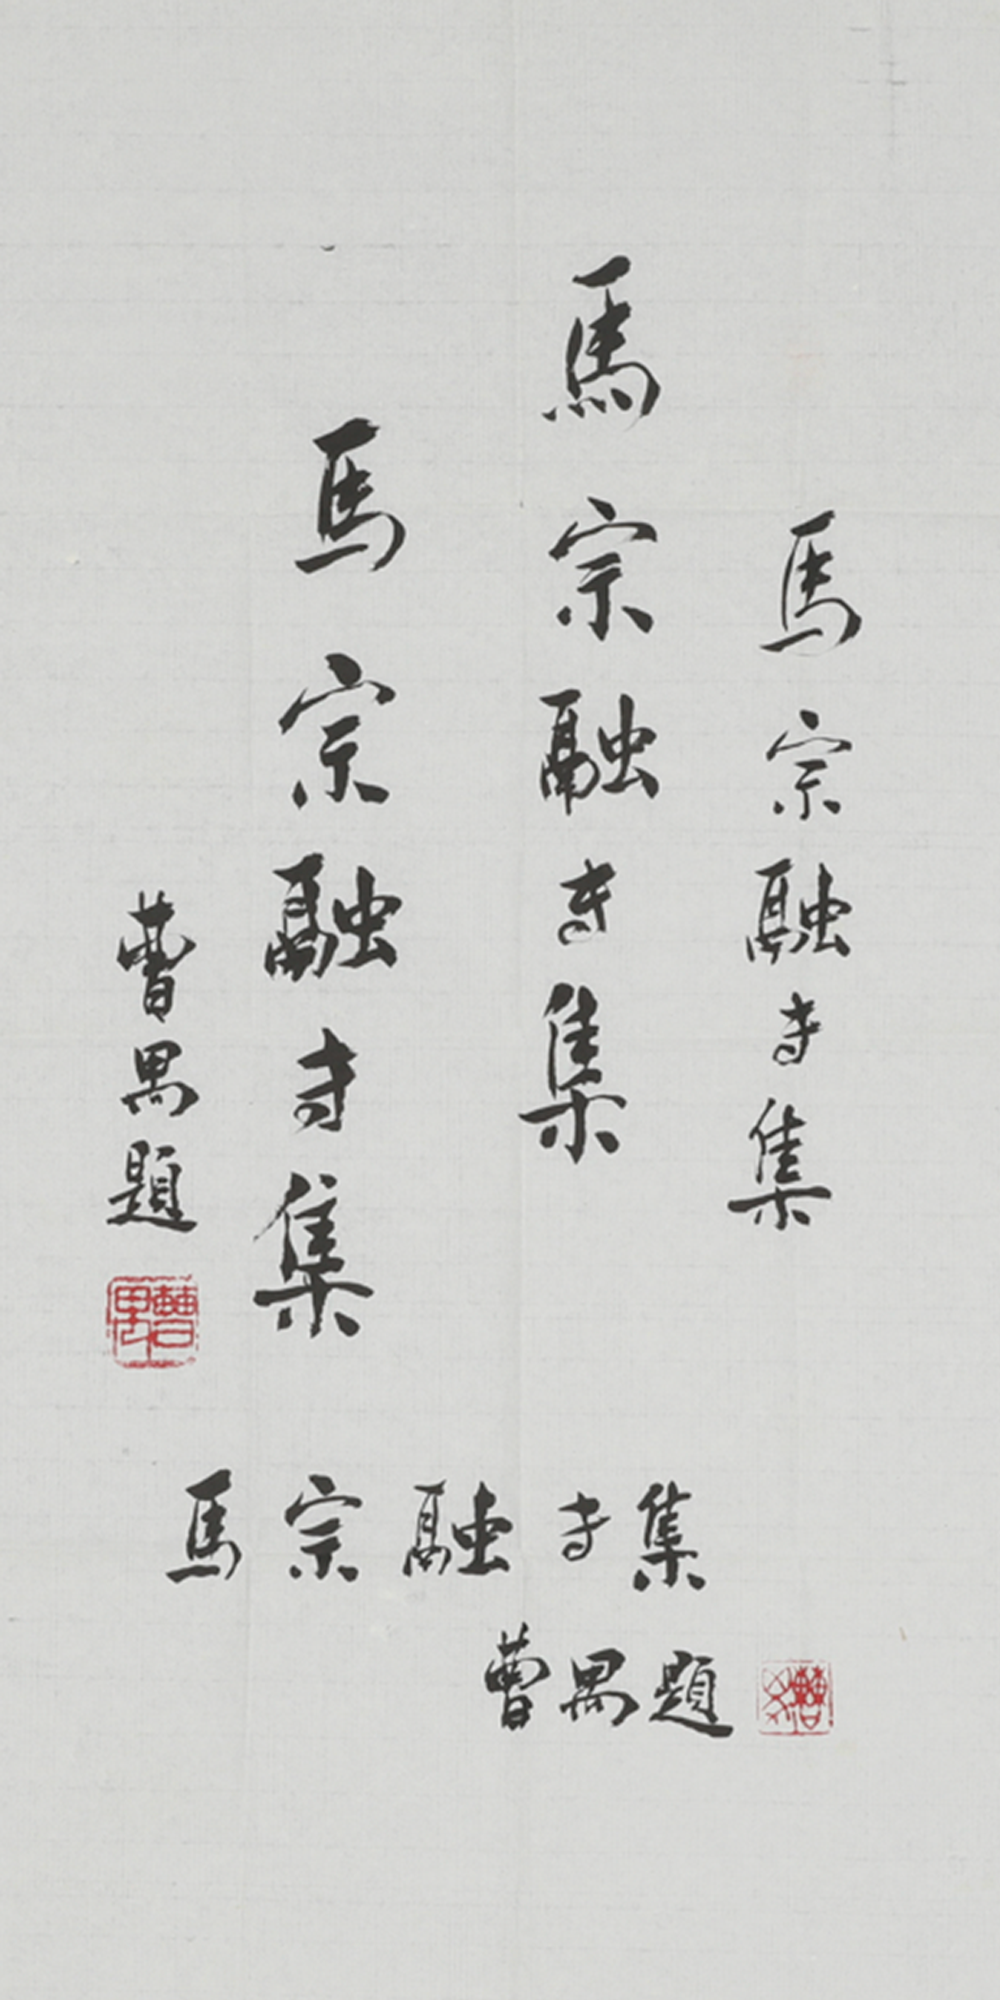 馬宗融专集
馬宗融专集
馬宗融专集
曹禺題
曹禺
馬宗融专集
曹禺題